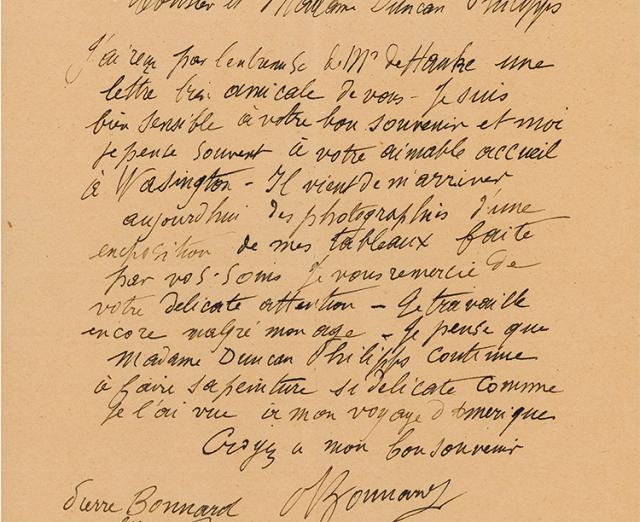 Monsieur et Madame Duncan Philipps
J'ai reçu par l'entremise de Mr de Hauke une
lettre bien amicale de vous - Je suis
bien sensible à votre bon souvenir et moi
je pense souvent à votre aimable accueil
à Wasington - Il vient de m'arriver
aujourdhui des photographies d'une
exposition de mes tableaux faite
par vos soins Je vous remercie de
votre délicate attention - Je travaille
encore malgré mon age - Je pense que
Madame Duncan Philipps continue
à faire sa peinture si délicate comme
je l'ai vue à mon voyage d'Amerique
Croyez a mon bon souvenir
Pierre Bonnard PBonnard